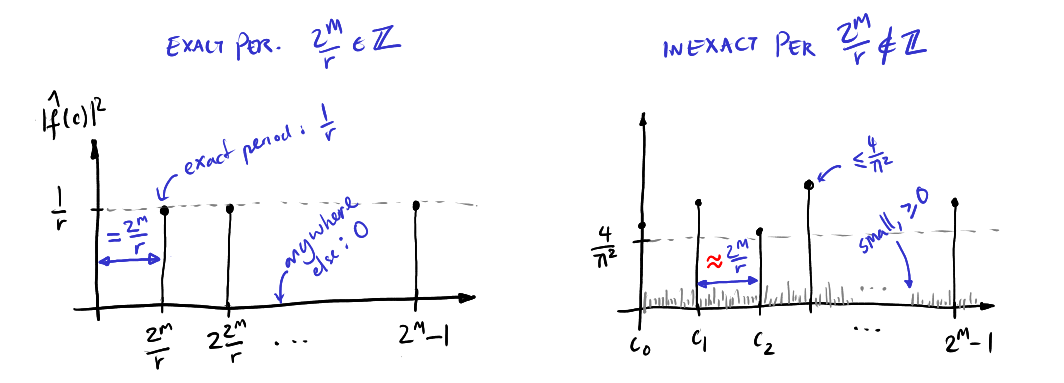 EXACT PER. 2^m/r ∈ ℤ
|f̂(c)|²
exact period: 1/r
1/r
= 2^m/r
anywhere
else: 0
2^m/r
2 2^m/r
...
2^m-1
INEXACT PER 2^m/r ∉ ℤ
≤ 4/π²
small, ≥0
4/π²
≈ 2^m/r
...
C₀
C₁
C₂
...
2^m-1